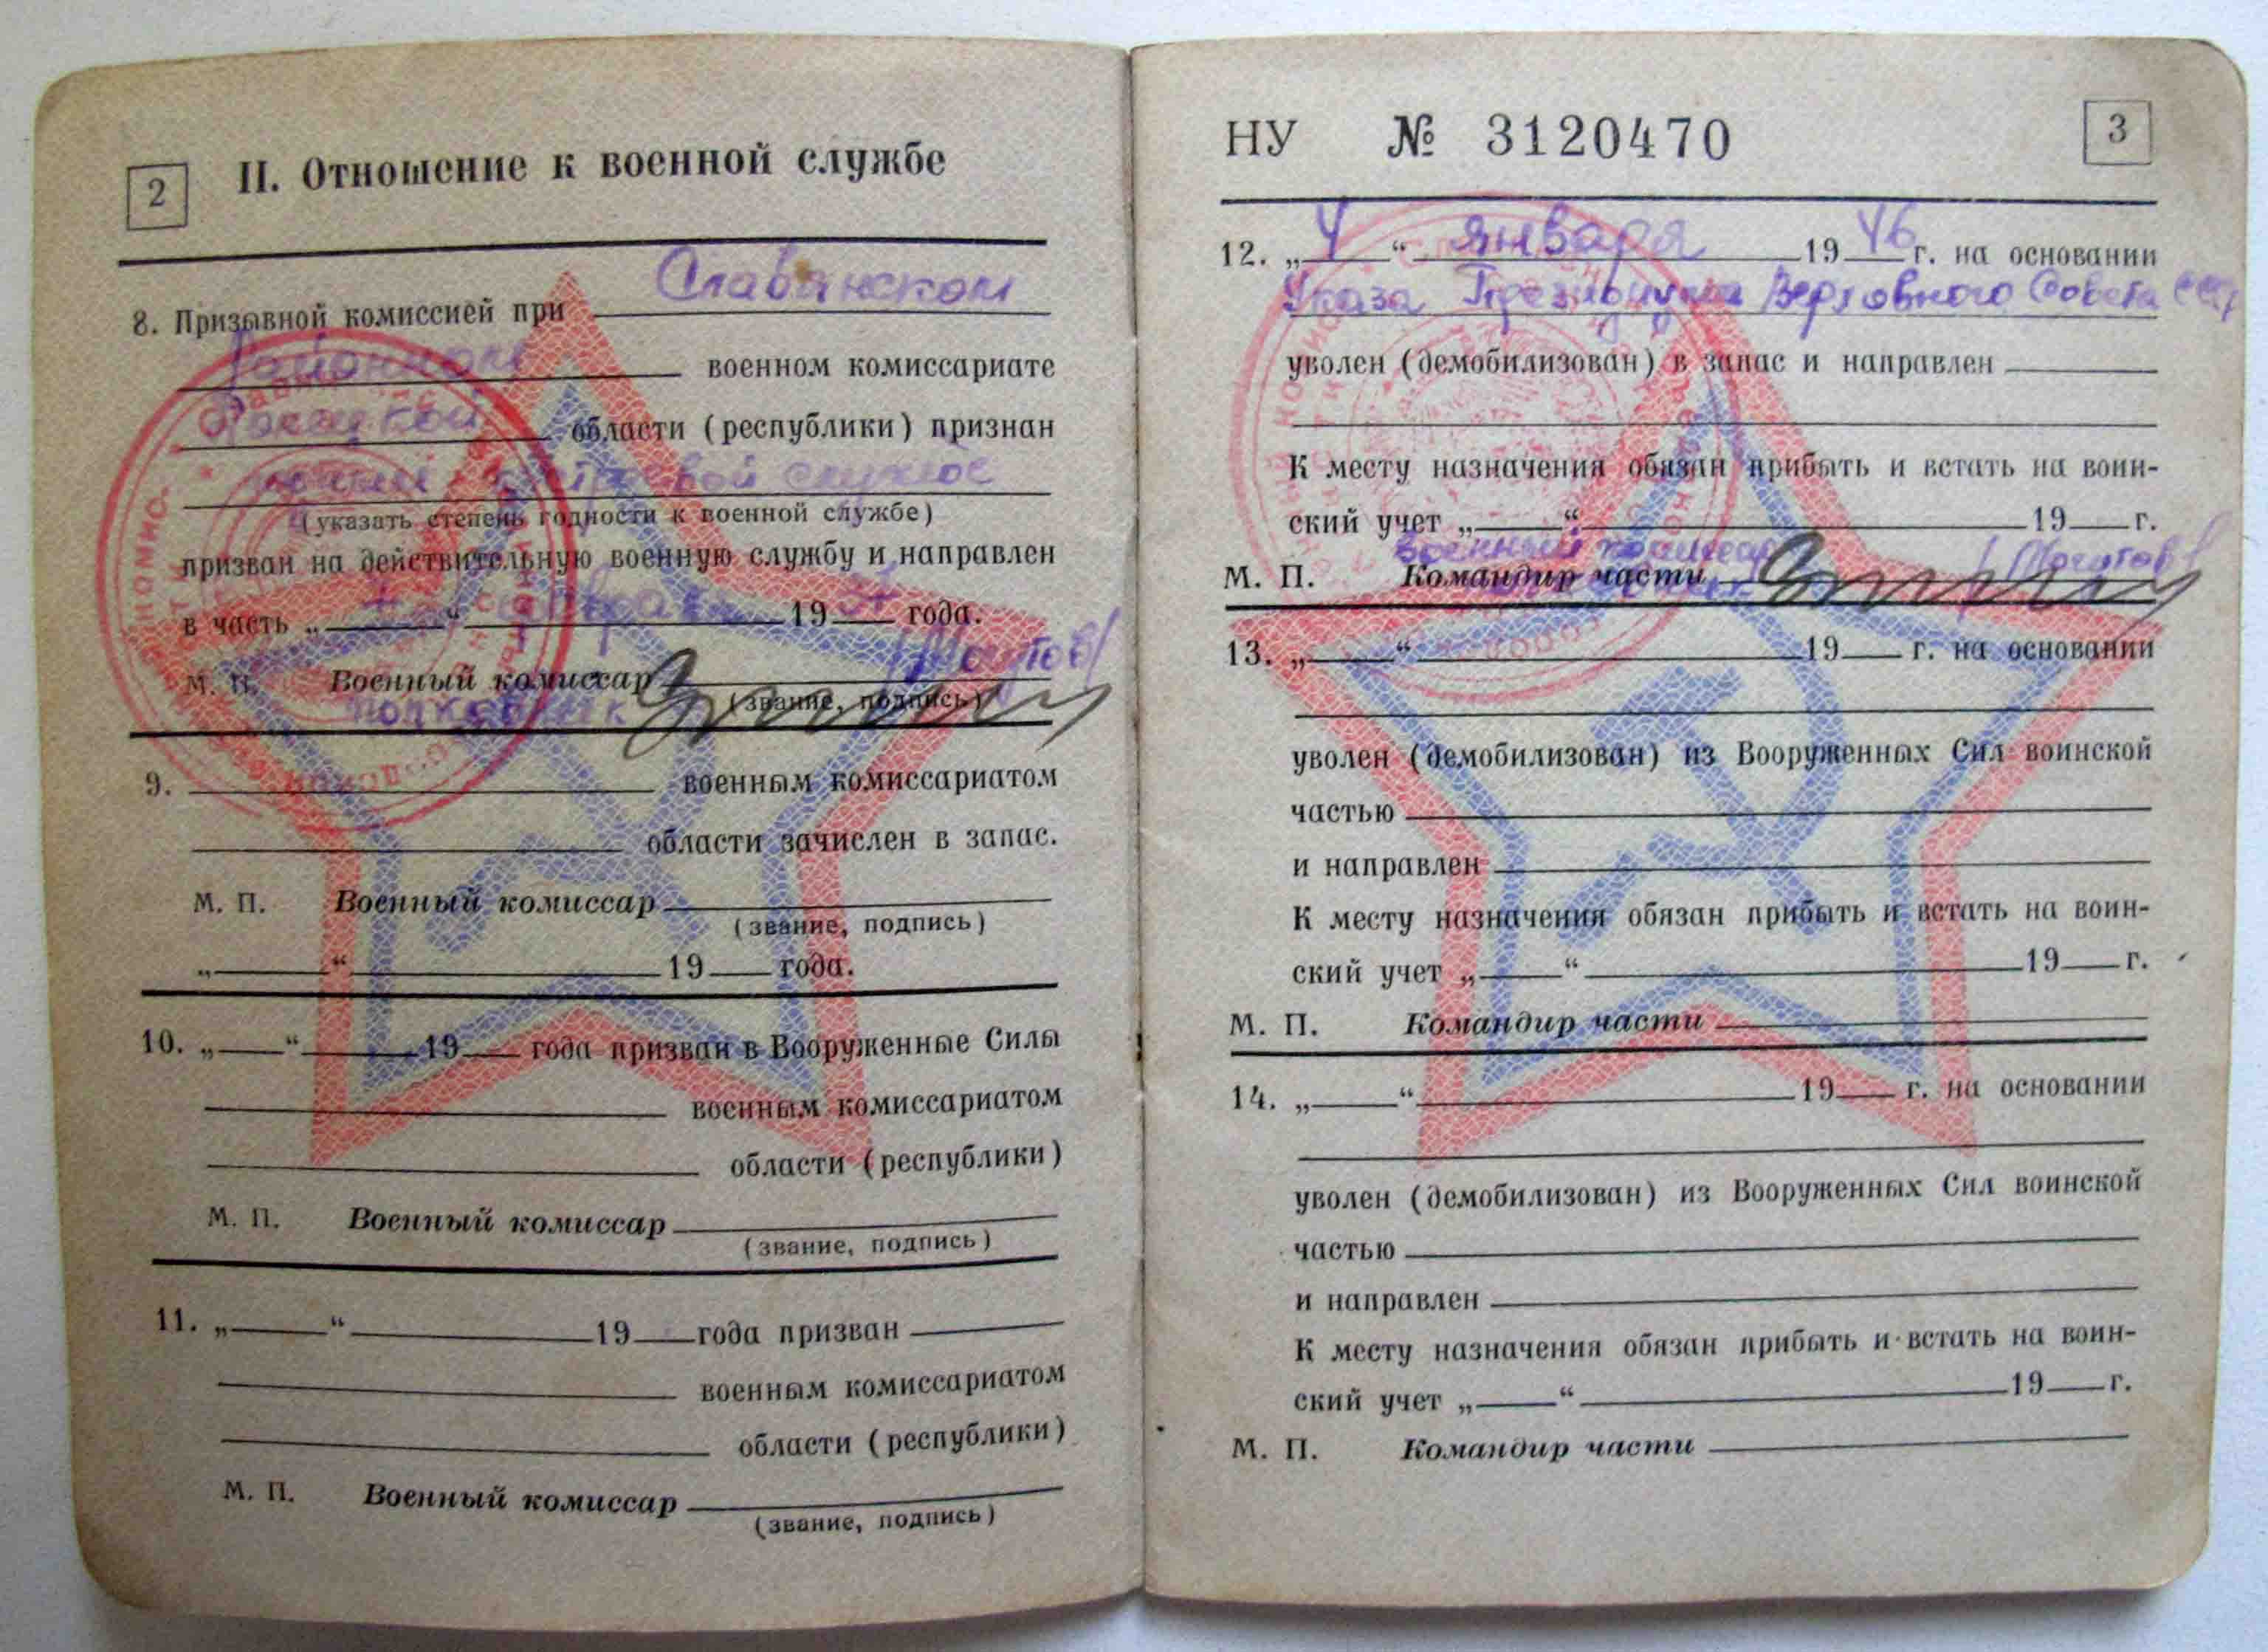 2
II. Отношение к военной службе
8. Призывной комиссией при Славянском
Районном военном комиссариате
области (республики) признан
строевой службе
(указать степень годности к военной службе)
призван на действительную военную службу и направлен
в часть „ “ 19 года.
М. П. Военный комиссар
полковник (звание, подпись)
9. военным комиссариатом
области зачислен в запас.
М. П. Военный комиссар
(звание, подпись)
„ “ 19 года.
10. „ “ 19 года призван в Вооруженные Силы
военным комиссариатом
области (республики)
М. П. Военный комиссар
(звание, подпись)
11. „ “ 19 года призван
военным комиссариатом
области (республики)
М. П. Военный комиссар
(звание, подпись)
НУ № 3120470
3
12. „ 4 “ января 19 46 г. на основании
Указа Президиума Верховного Совета СССР
уволен (демобилизован) в запас и направлен
К месту назначения обязан прибыть и встать на воин-
ский учет „ “ 19 г.
Военный комиссар
М. П. Командир части
13. „ “ 19 г. на основании
уволен (демобилизован) из Вооруженных Сил воинской
частью
и направлен
К месту назначения обязан прибыть и встать на воин-
ский учет „ “ 19 г.
М. П. Командир части
14. „ “ 19 г. на основании
уволен (демобилизован) из Вооруженных Сил воинской
частью
и направлен
К месту назначения обязан прибыть и встать на воин-
ский учет „ “ 19 г.
М. П. Командир части